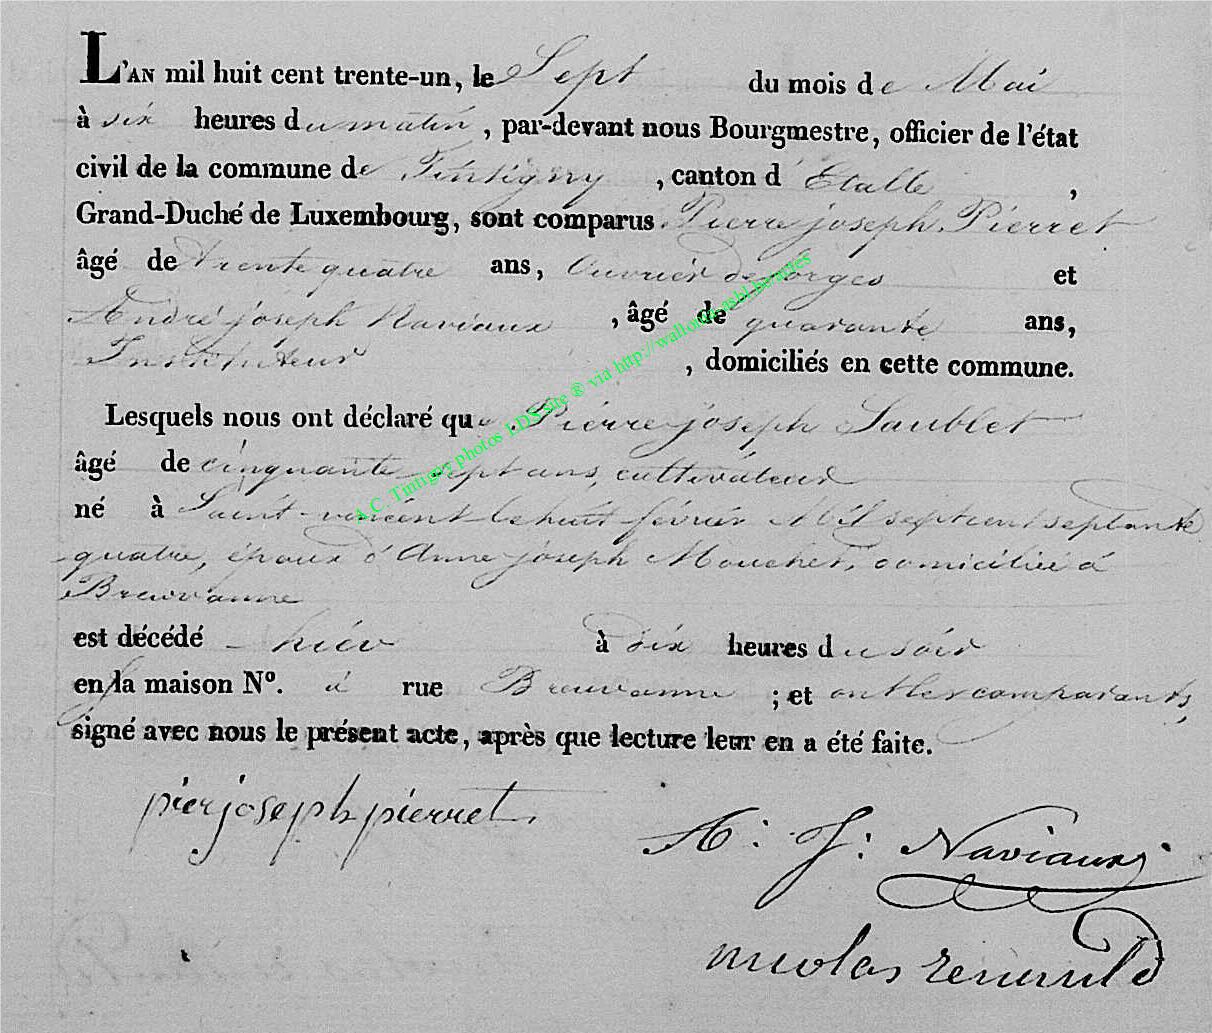 L'AN mil huit cent trente-un, le Sept du mois de Mai
à six heures du matin, par-devant nous Bourgmestre, officier de l'état
civil de la commune de Tintigny, canton d'Etalle,
Grand-Duché de Luxembourg, sont comparus Pierre joseph Pierret
âgé de trente quatre ans, Ouvrier de forges et
André joseph Naviaux, âgé de quarante ans,
Instituteur, domiciliés en cette commune.
Lesquels nous ont déclaré que Pierre joseph Saublet
âgé de cinquante sept ans, cultivateur
né à Saint-vincent le huit février Mil sept cent septante
quatre, époux d'Anne joseph Mouchet, domiciliée à
Breuvanne
est décédé hier à six heures du soir
en la maison Nº. à rue Breuvanne; et ont les comparants,
signé avec nous le présent acte, après que lecture leur en a été faite.
pierjoseph pierret
A: J: Naviaux
nicolas
A.C. Tintigny photos LDS site ® via http://wallonia.asbl.be/actes